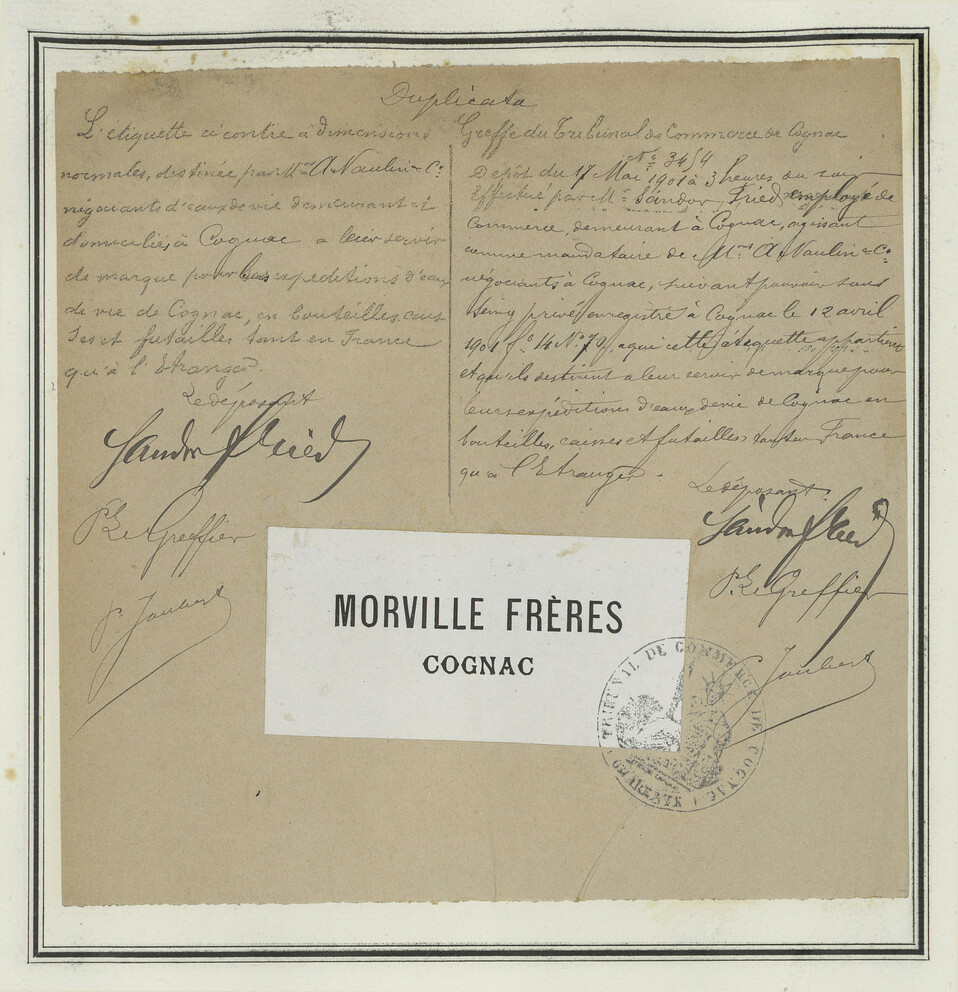 Duplicata
L'étiquette ci contre à dimensions
normales, destinée par Mrs A. Naulin & Cie
négociants d'eaux de vie demeurant et
domiciliés à Cognac a leur servir
de marque pour les expeditions d'eaux
de vie de Cognac, en bouteilles, cais
ses et futailles tant en France
qu'à l'Etranger.
Le déposant
Sandor Fried
Pr Le Greffier
P. Joubert
Greffe du Tribunal de Commerce de Cognac
No 3454
Dépôt du 17 Mai 1901 à 3 heures du soir
Effectué par Mr Sándor Fried, employé de
commerce, demeurant à Cognac, agissant
comme mandataire de Mrs A. Naulin & Cie
négociants à Cognac, suivant pouvoir sous
seing privé enregistré à Cognac le 12 avril
1901 fo 14 No 79, a qui cette étiquette appartient
et qu'ils destinent a leur servir de marque pour
leurs expéditions d'eaux de vie de Cognac en
bouteilles, caisses et futailles tant en France
qu'à l'Etranger.
Le déposant
Sándor Fried
Pr Le Greffier
P. Joubert
MORVILLE FRÈRES
COGNAC
TRIBUNAL DE COMMERCE DE COGNAC